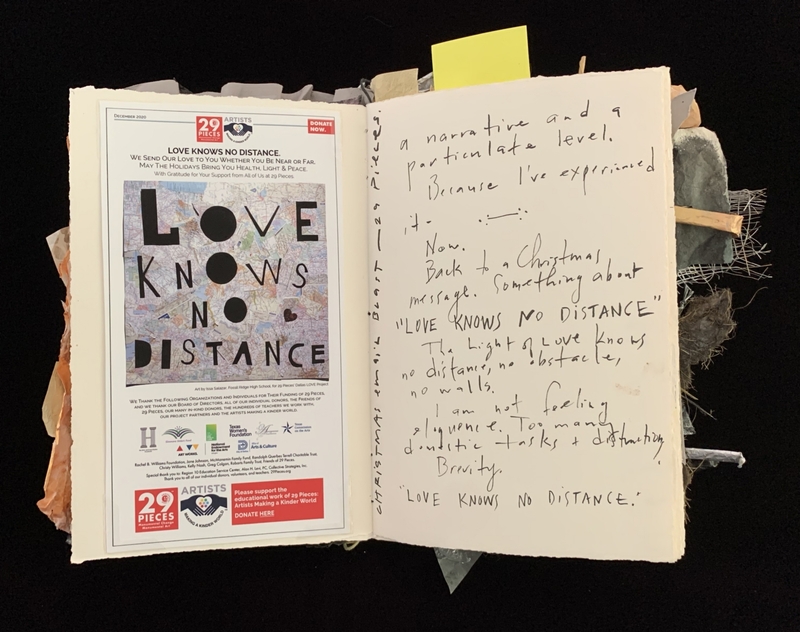 DECEMBER 2020
29
PIECES
ARTISTS
MAKING A KINDER WORLD
DONATE
NOW.
LOVE KNOWS NO DISTANCE.
WE SEND OUR LOVE TO YOU WHETHER YOU BE NEAR OR FAR.
MAY THE HOLIDAYS BRING YOU HEALTH, LIGHT & PEACE.
With Gratitude for Your Support from All of Us at 29 Pieces
LOVE
KNOWS
NO
DISTANCE
High School, for 29 Pieces' Dallas LOVE Project
WE THANK THE FOLLOWING ORGANIZATIONS AND INDIVIDUALS FOR THEIR FUNDING OF 29 PIECES,
AND WE THANK OUR BOARD OF DIRECTORS, ALL OF OUR INDIVIDUAL DONORS, THE FRIENDS OF
29 PIECES, OUR MANY IN-KIND DONORS, THE HUNDREDS OF TEACHERS WE WORK WITH,
OUR PROJECT PARTNERS AND THE ARTISTS MAKING A KINDER WORLD.
H
ART WORKS.
Texas
Women's
Foundation
Arts & Culture
Thank you to all of our individual donors, volunteers, and teachers. 29Pieces.org
29
PIECES
Monumental Change
Monumental Art
ARTISTS
MAKING A KINDER WORLD
Please support the
educational work of 29 Pieces:
Artists Making a Kinder World
DONATE HERE
CHRISTMAS EMAIL BLAST — 29 PIECES.
a narrative and a
particulate level.
Because I've experienced
it.
Now.
Back to a Christmas
message. Something about
"LOVE KNOWS NO DISTANCE"
The Light of Love knows
no distance, no obstacle,
no walls.
I am not feeling
eloquence. Too many
domestic tasks + distraction.
Brevity.
"LOVE KNOWS NO DISTANCE."